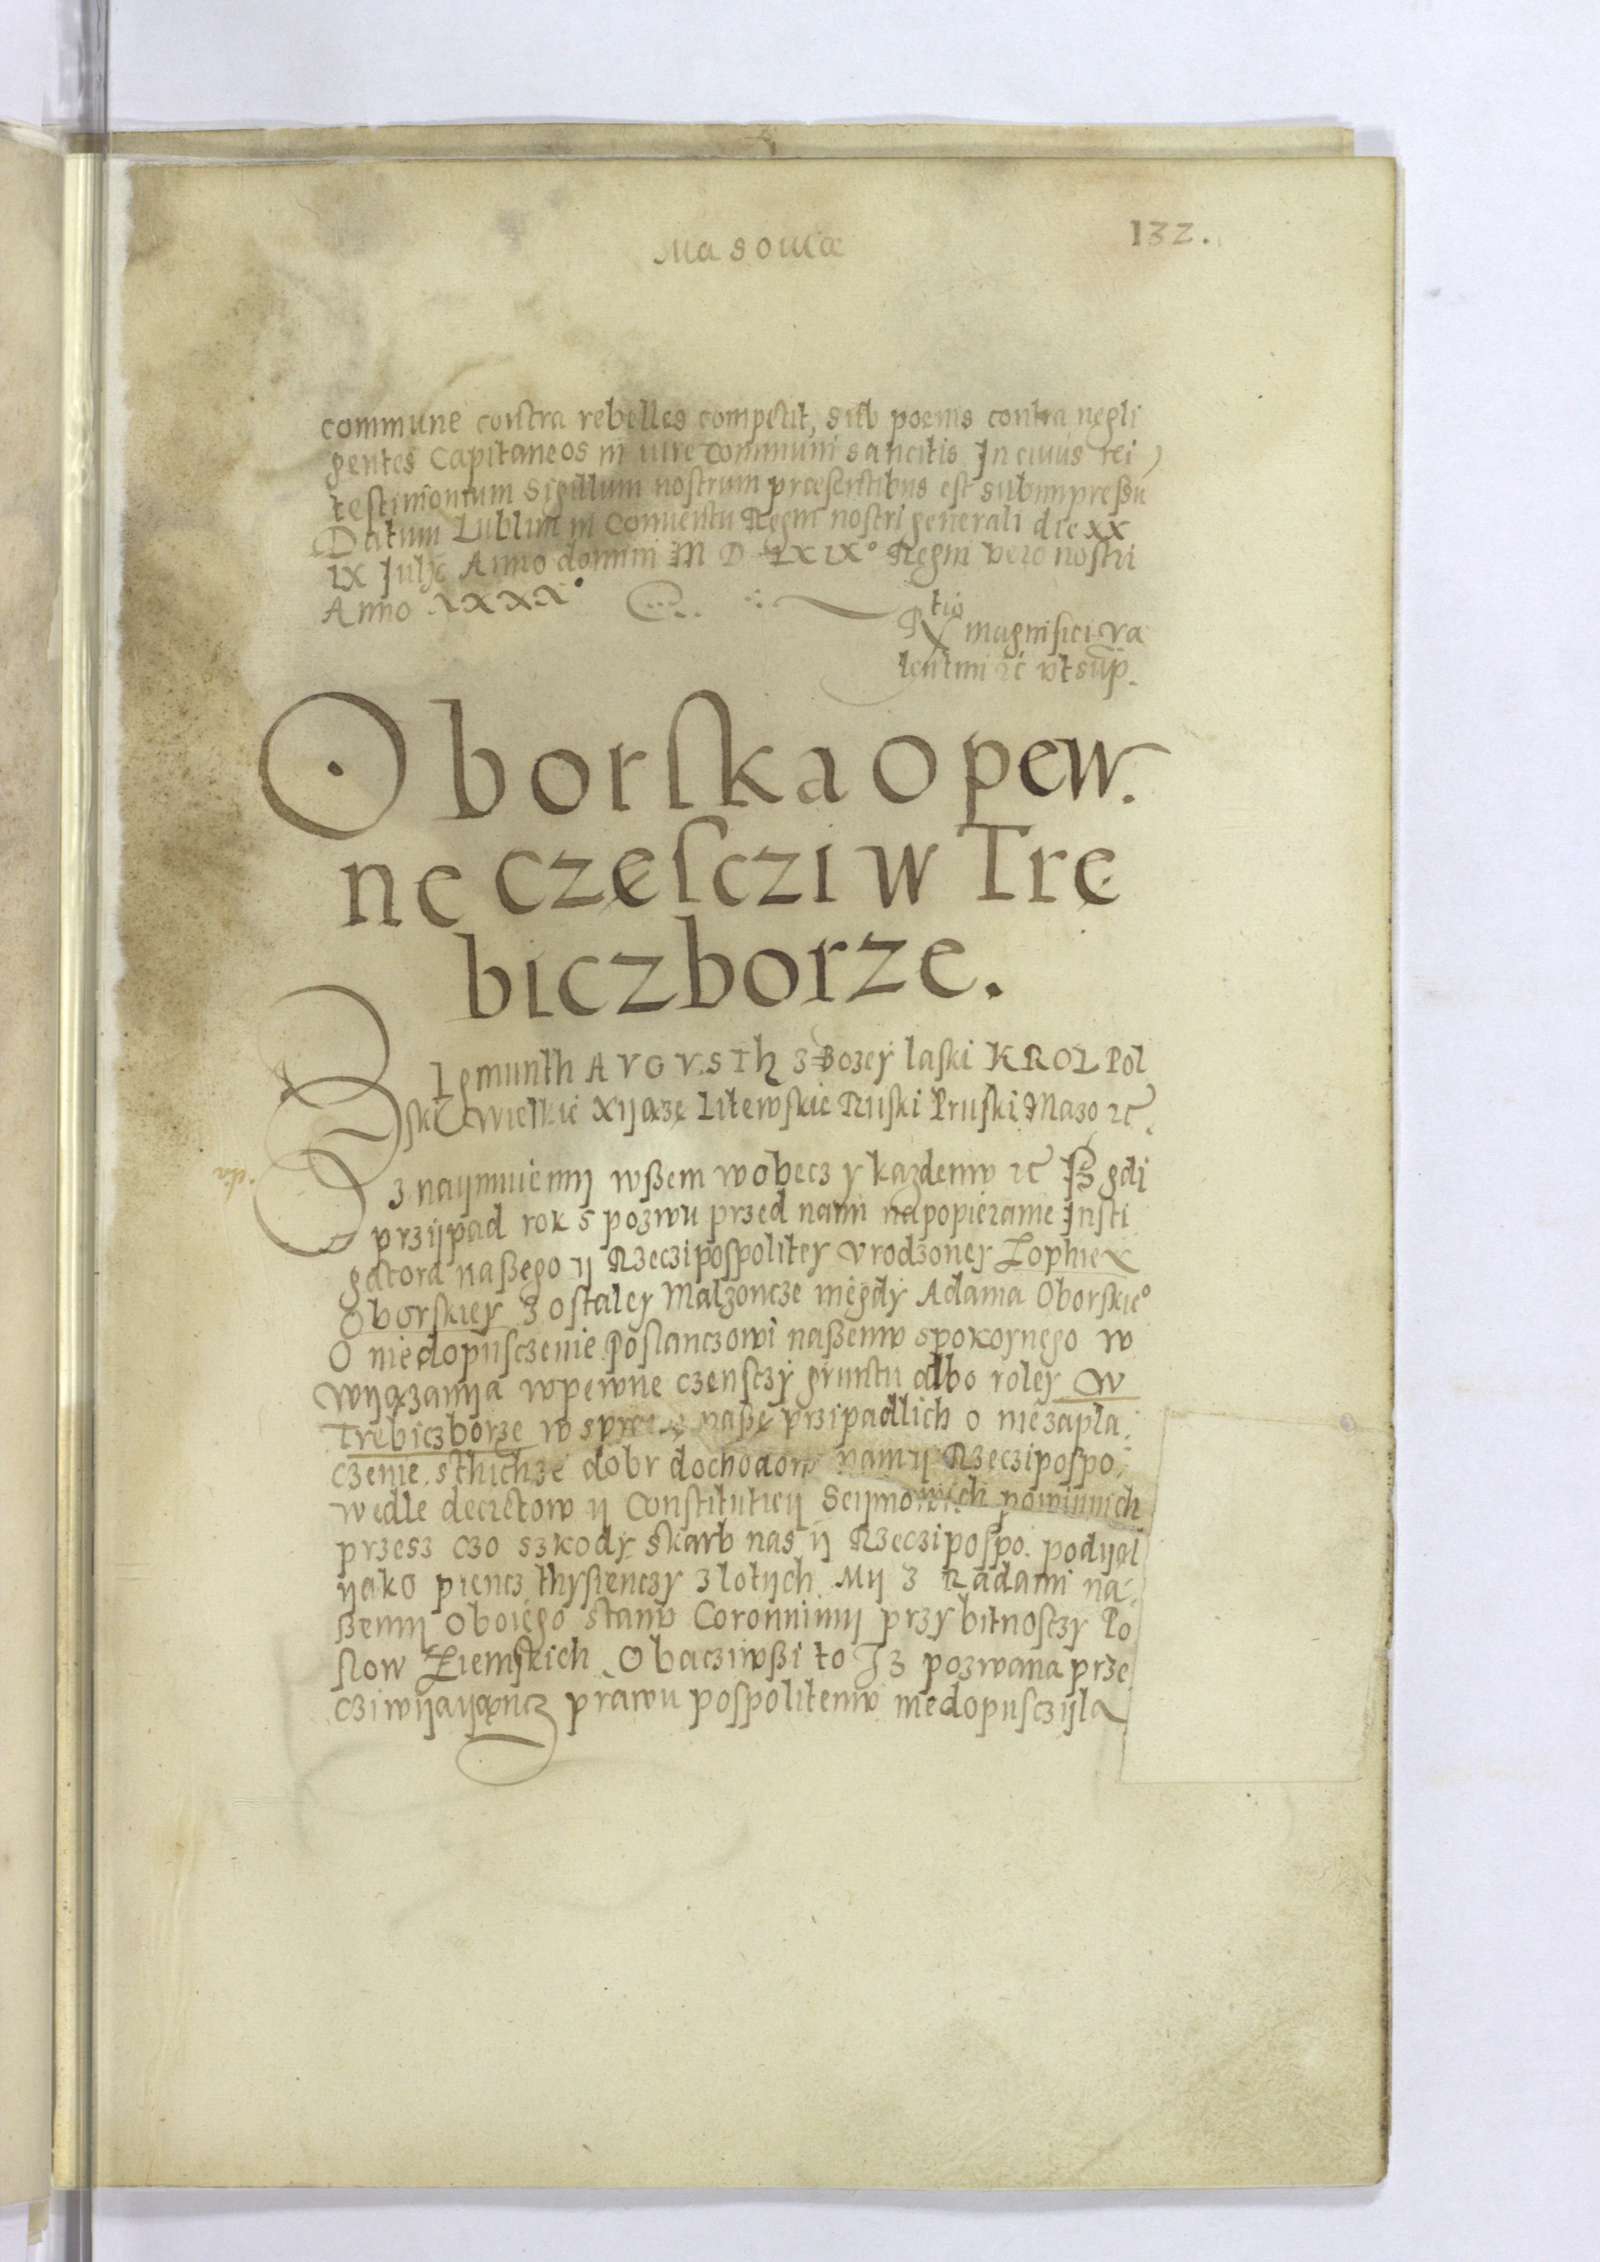 Masouiæ
132.
commune contra rebelles competit, sub poenis contra negli
gentes Capitaneos in iure communi sancitis In cuius rei
testimonium Sigillum nostrum præsentibus est subimpreßu
Datum Lublini in Conuentu Regni nostri generali die XX
IX Julij Anno domini M D LXIX° Regni vero nostri
Anno XXXX°
R tio magnifici Va
lentini ꝛc̃ vt sup̃.
Oborska o pew.
ne częsczi w Trę
biczborze.
Zigmunth AVGVSTH z Bozey laski KROL Pol
ski Wielkie Xijąze Litewskie Ruski Pruski Mazo ꝛc̃
Oznaymuiemy wßem wobecz y kazdemu ꝛc̃ Jß gdi
przijpad rok s pozwu przed nami na popieranie Insti
gatora naßego ij Rzeczipospolitey vrodzoney Zophiey
Oborskiey zostaley Malzoncze niegdy Adama Oborskie°
O niedopusczenie Poslanczowi naßemu spokoynego w
wijązanija w pewne czensczy gruntu albo roley w
Trębiczborze w naßę przipadlich o niezapla.
czenie s thichze dobr dochodow nam ij Rzeczipospo.
wedle decretow ij Constituticij Seijmowich powinnich
przesz czo szkody skarb nas ij Rzeczipospo. podijął
ijako piencz thysienczy zlotijch Mij z Radami na.
ßemij oboiego stanu Coronnimij przy bitnosczy Po
slow Ziemskich Obacziwßi to Jz pozwana prze
cziwijaijąncz prawu pospolitemu niedopusczijla